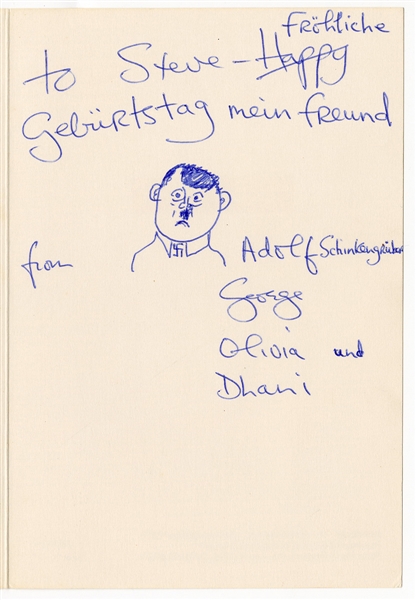 Fröhliche
to Steve - Happy
Gebürtstag mein freund
from Adolf Schinkengrüber
George
Olivia und
Dhani